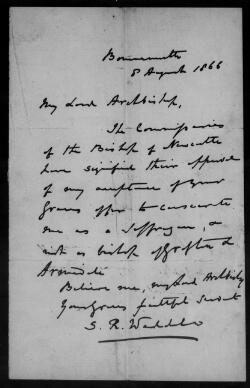 Bournemouth
8 August 1866
My Lord Archbishop,
The Commissaries
of the Bishop of Newcastle
have signified their approval
of my acceptance of your
Graces offer to consecrate
me as a Suffragan, &
not as bishop of Grafton &
Armidale
Believe me, my Lord Archbishop
Your Graces faithful Servant